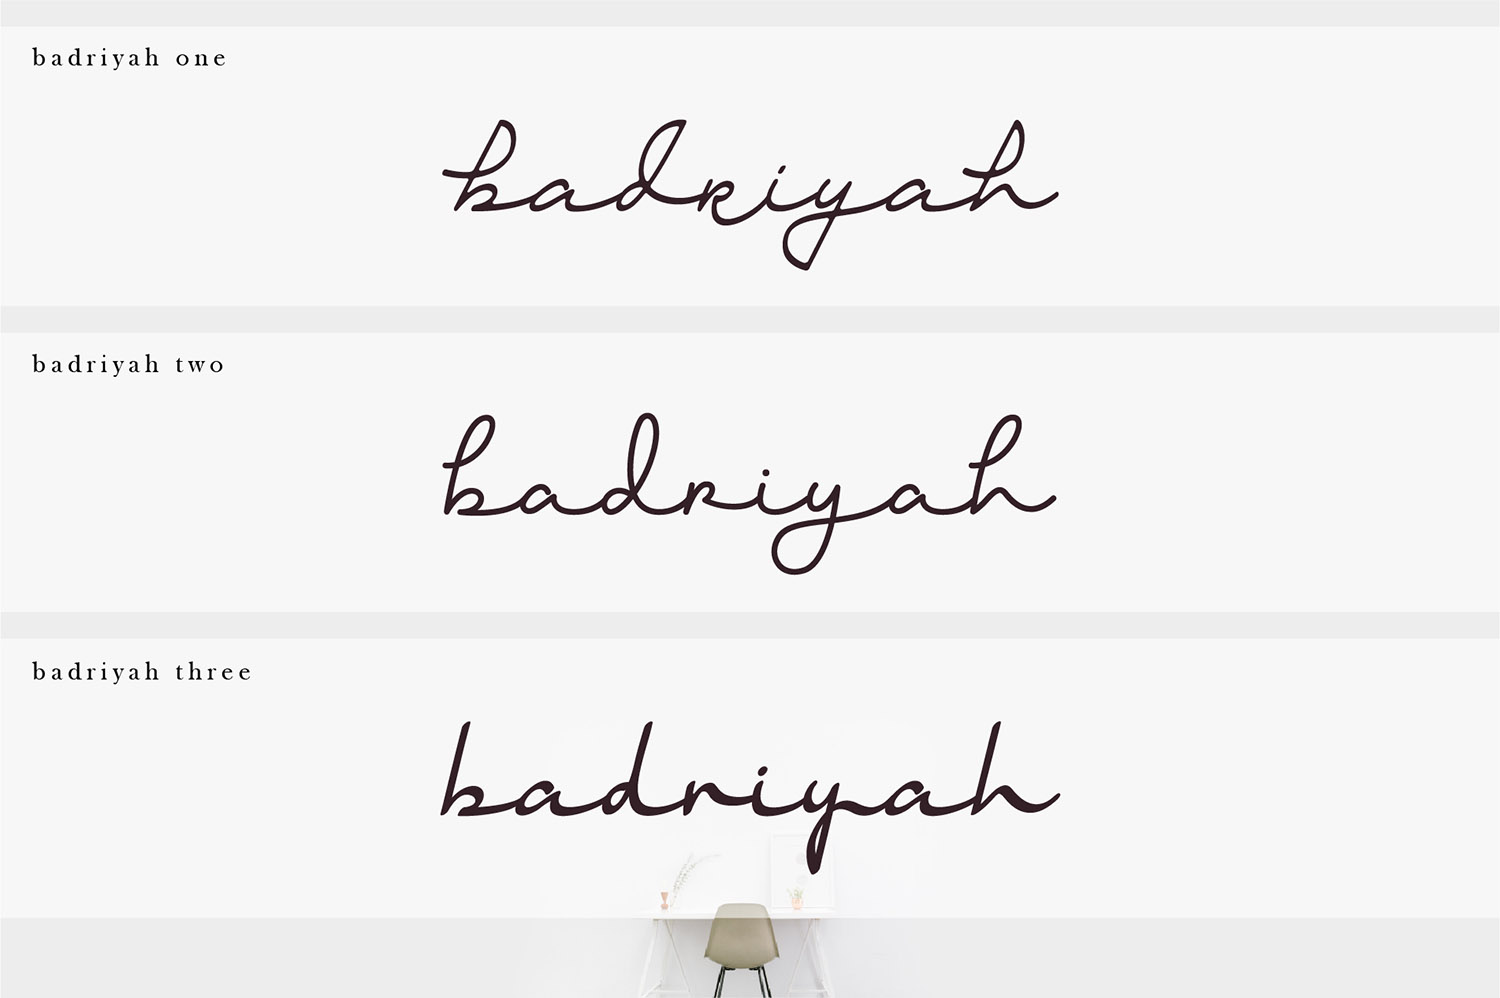 badriyah one
badriyah
badriyah two
badriyah
badriyah three
badriyah